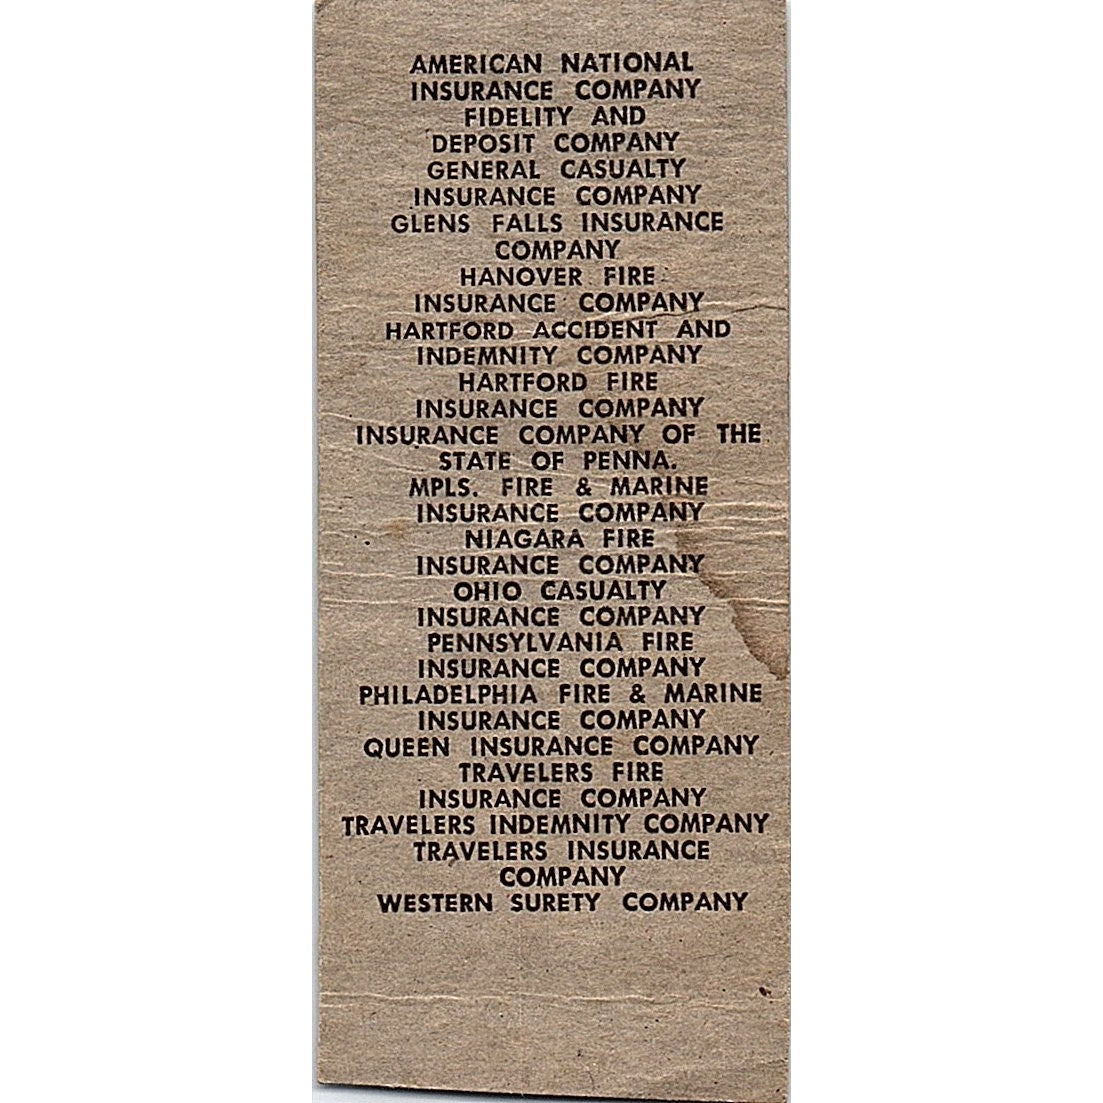 AMERICAN NATIONAL
INSURANCE COMPANY
FIDELITY AND
DEPOSIT COMPANY
GENERAL CASUALTY
INSURANCE COMPANY
GLENS FALLS INSURANCE
COMPANY
HANOVER FIRE
INSURANCE COMPANY
HARTFORD ACCIDENT AND
INDEMNITY COMPANY
HARTFORD FIRE
INSURANCE COMPANY
INSURANCE COMPANY OF THE
STATE OF PENNA.
MPLS. FIRE & MARINE
INSURANCE COMPANY
NIAGARA FIRE
INSURANCE COMPANY
OHIO CASUALTY
INSURANCE COMPANY
PENNSYLVANIA FIRE
INSURANCE COMPANY
PHILADELPHIA FIRE & MARINE
INSURANCE COMPANY
QUEEN INSURANCE COMPANY
TRAVELERS FIRE
INSURANCE COMPANY
TRAVELERS INDEMNITY COMPANY
TRAVELERS INSURANCE
COMPANY
WESTERN SURETY COMPANY